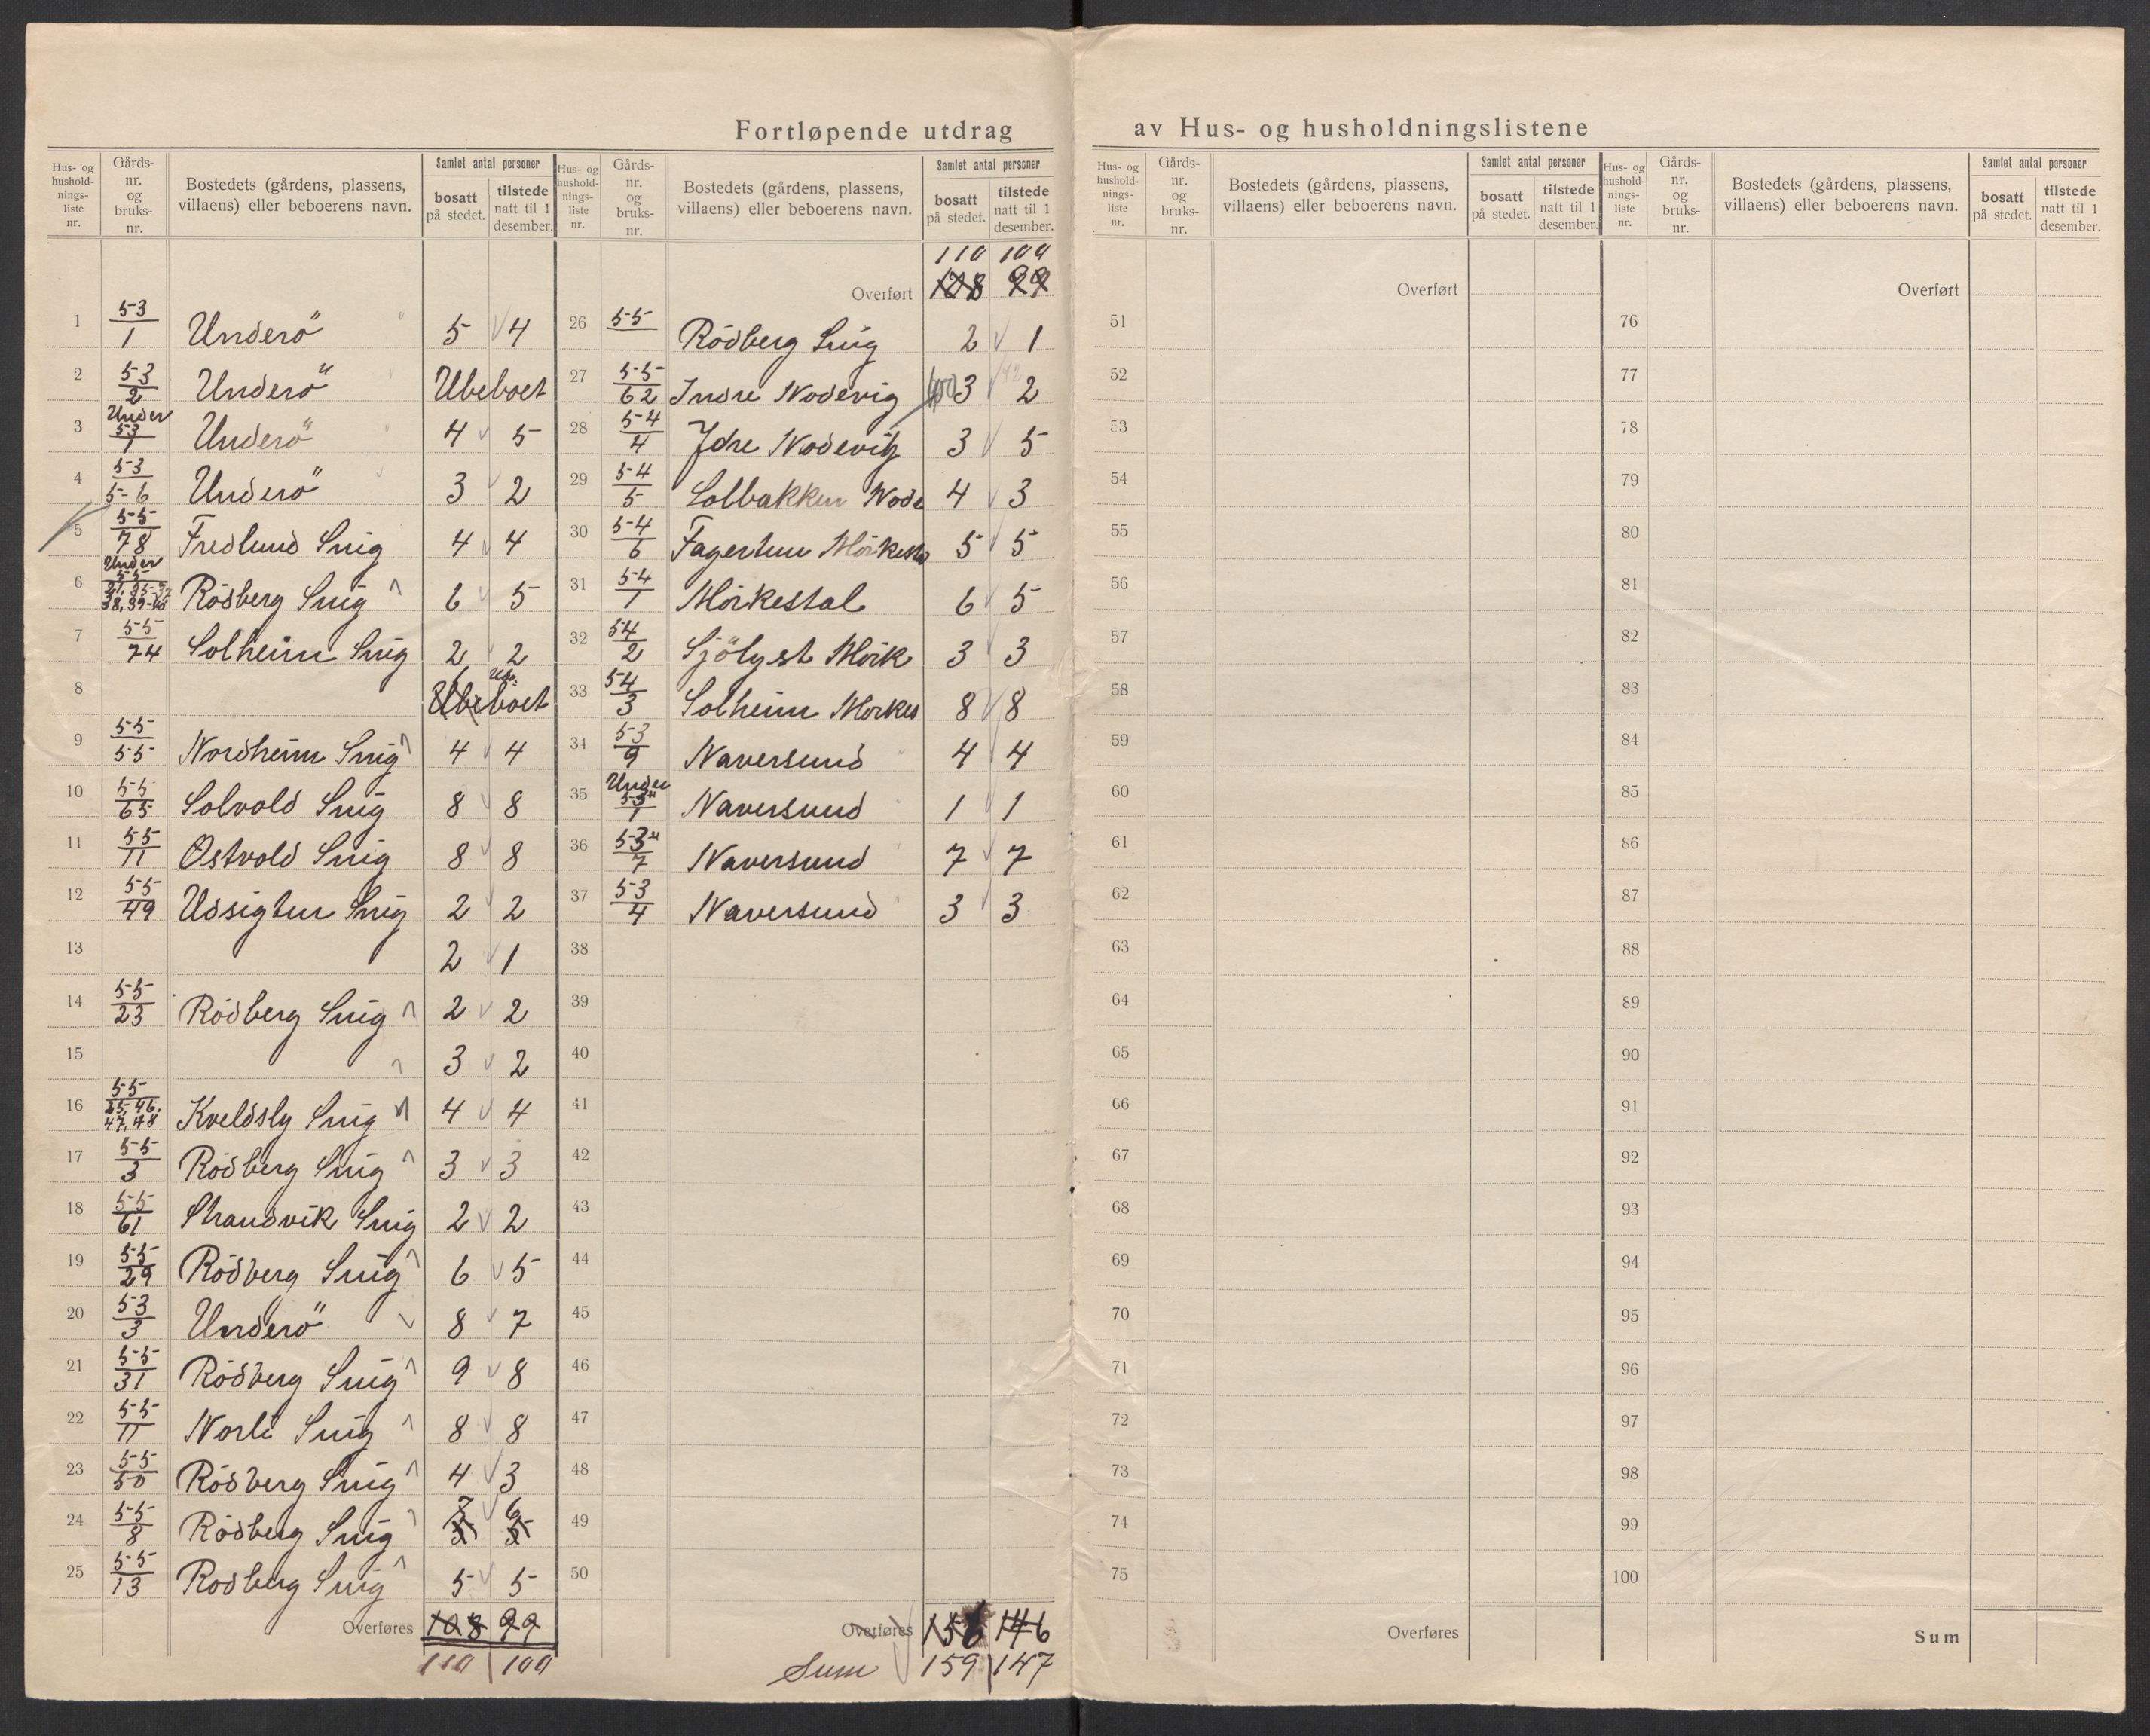 Fortløpende utdrag av Hus- og husholdningslistene
Hus- og hushold- nings- liste nr. | Gårds- nr. og bruks- nr. | Bostedets (gårdens, plassens, villaens) eller beboerens navn. | Samlet antal personer | bosatt på stedet. | tilstede natt til 1 desember.
1 53/1 Underö 5 4
2 53/2 Underö Ubeboet
3 Under 53/1 Underö 4 5
4 53/5-6 Underö 3 2
5 55/78 Fredlund Snig 4 4
6 Under 55 Rödberg Snig 6 5
7 55/74 Solheim Snig 2 2
8 Ubeboet
9 55/55 Nordheim Snig 4 4
10 55/65 Solvold Snig 8 8
11 55/11 Ostvold Snig 8 8
12 55/49 Udsigten Snig 2 2
13 2 1
14 55/23 Rödberg Snig 2 2
15 3 2
16 55/25, 46, 47, 48 Kveldsly Snig 4 4
17 55/3 Rödberg Snig 3 3
18 55/61 Strandvik Snig 2 2
19 55/29 Rödberg Snig 6 5
20 53/3 Underö 8 7
21 55/31 Rödberg Snig 9 8
22 55/11 Norli Snig 8 8
23 55/50 Rödberg Snig 4 3
24 55/8 Rödberg Snig 7 6
25 55/13 Rodberg Snig 5 5
Overføres 108 99
110 100
Hus- og hushold- nings- liste nr. | Gårds- nr. og bruks- nr. | Bostedets (gårdens, plassens, villaens) eller beboerens navn. | Samlet antal personer | bosatt på stedet. | tilstede natt til 1 desember.
110 100
Overført 108 99
26 55 Rödberg Snig 2 1
27 55/62 Indre Nodevig 3 2
28 54/4 Jdre Nodevig 3 5
29 54/5 Solbakken Node 4 3
30 54/6 Fagertun Mörkesta 5 5
31 54/1 Mörkestal 6 5
32 54/2 Sjölyst Mörk 3 3
33 54/3 Solheim Morkes 8 8
34 53/9 Naversund 4 4
35 Under 53/1 Naversund 1 1
36 53/7 Naversund 7 7
37 53/4 Naversund 3 3
38
39
40
41
42
43
44
45
46
47
48
49
50
Overføres 146
Sum 159 147
Hus- og hushold- nings- liste nr. | Gårds- nr. og bruks- nr. | Bostedets (gårdens, plassens, villaens) eller beboerens navn. | Samlet antal personer | bosatt på stedet. | tilstede natt til 1 desember.
Overført
51
52
53
54
55
56
57
58
59
60
61
62
63
64
65
66
67
68
69
70
71
72
73
74
75
Overføres
Hus- og hushold- nings- liste nr. | Gårds- nr. og bruks- nr. | Bostedets (gårdens, plassens, villaens) eller beboerens navn. | Samlet antal personer | bosatt på stedet. | tilstede natt til 1 desember.
Overført
76
77
78
79
80
81
82
83
84
85
86
87
88
89
90
91
92
93
94
95
96
97
98
99
100
Sum